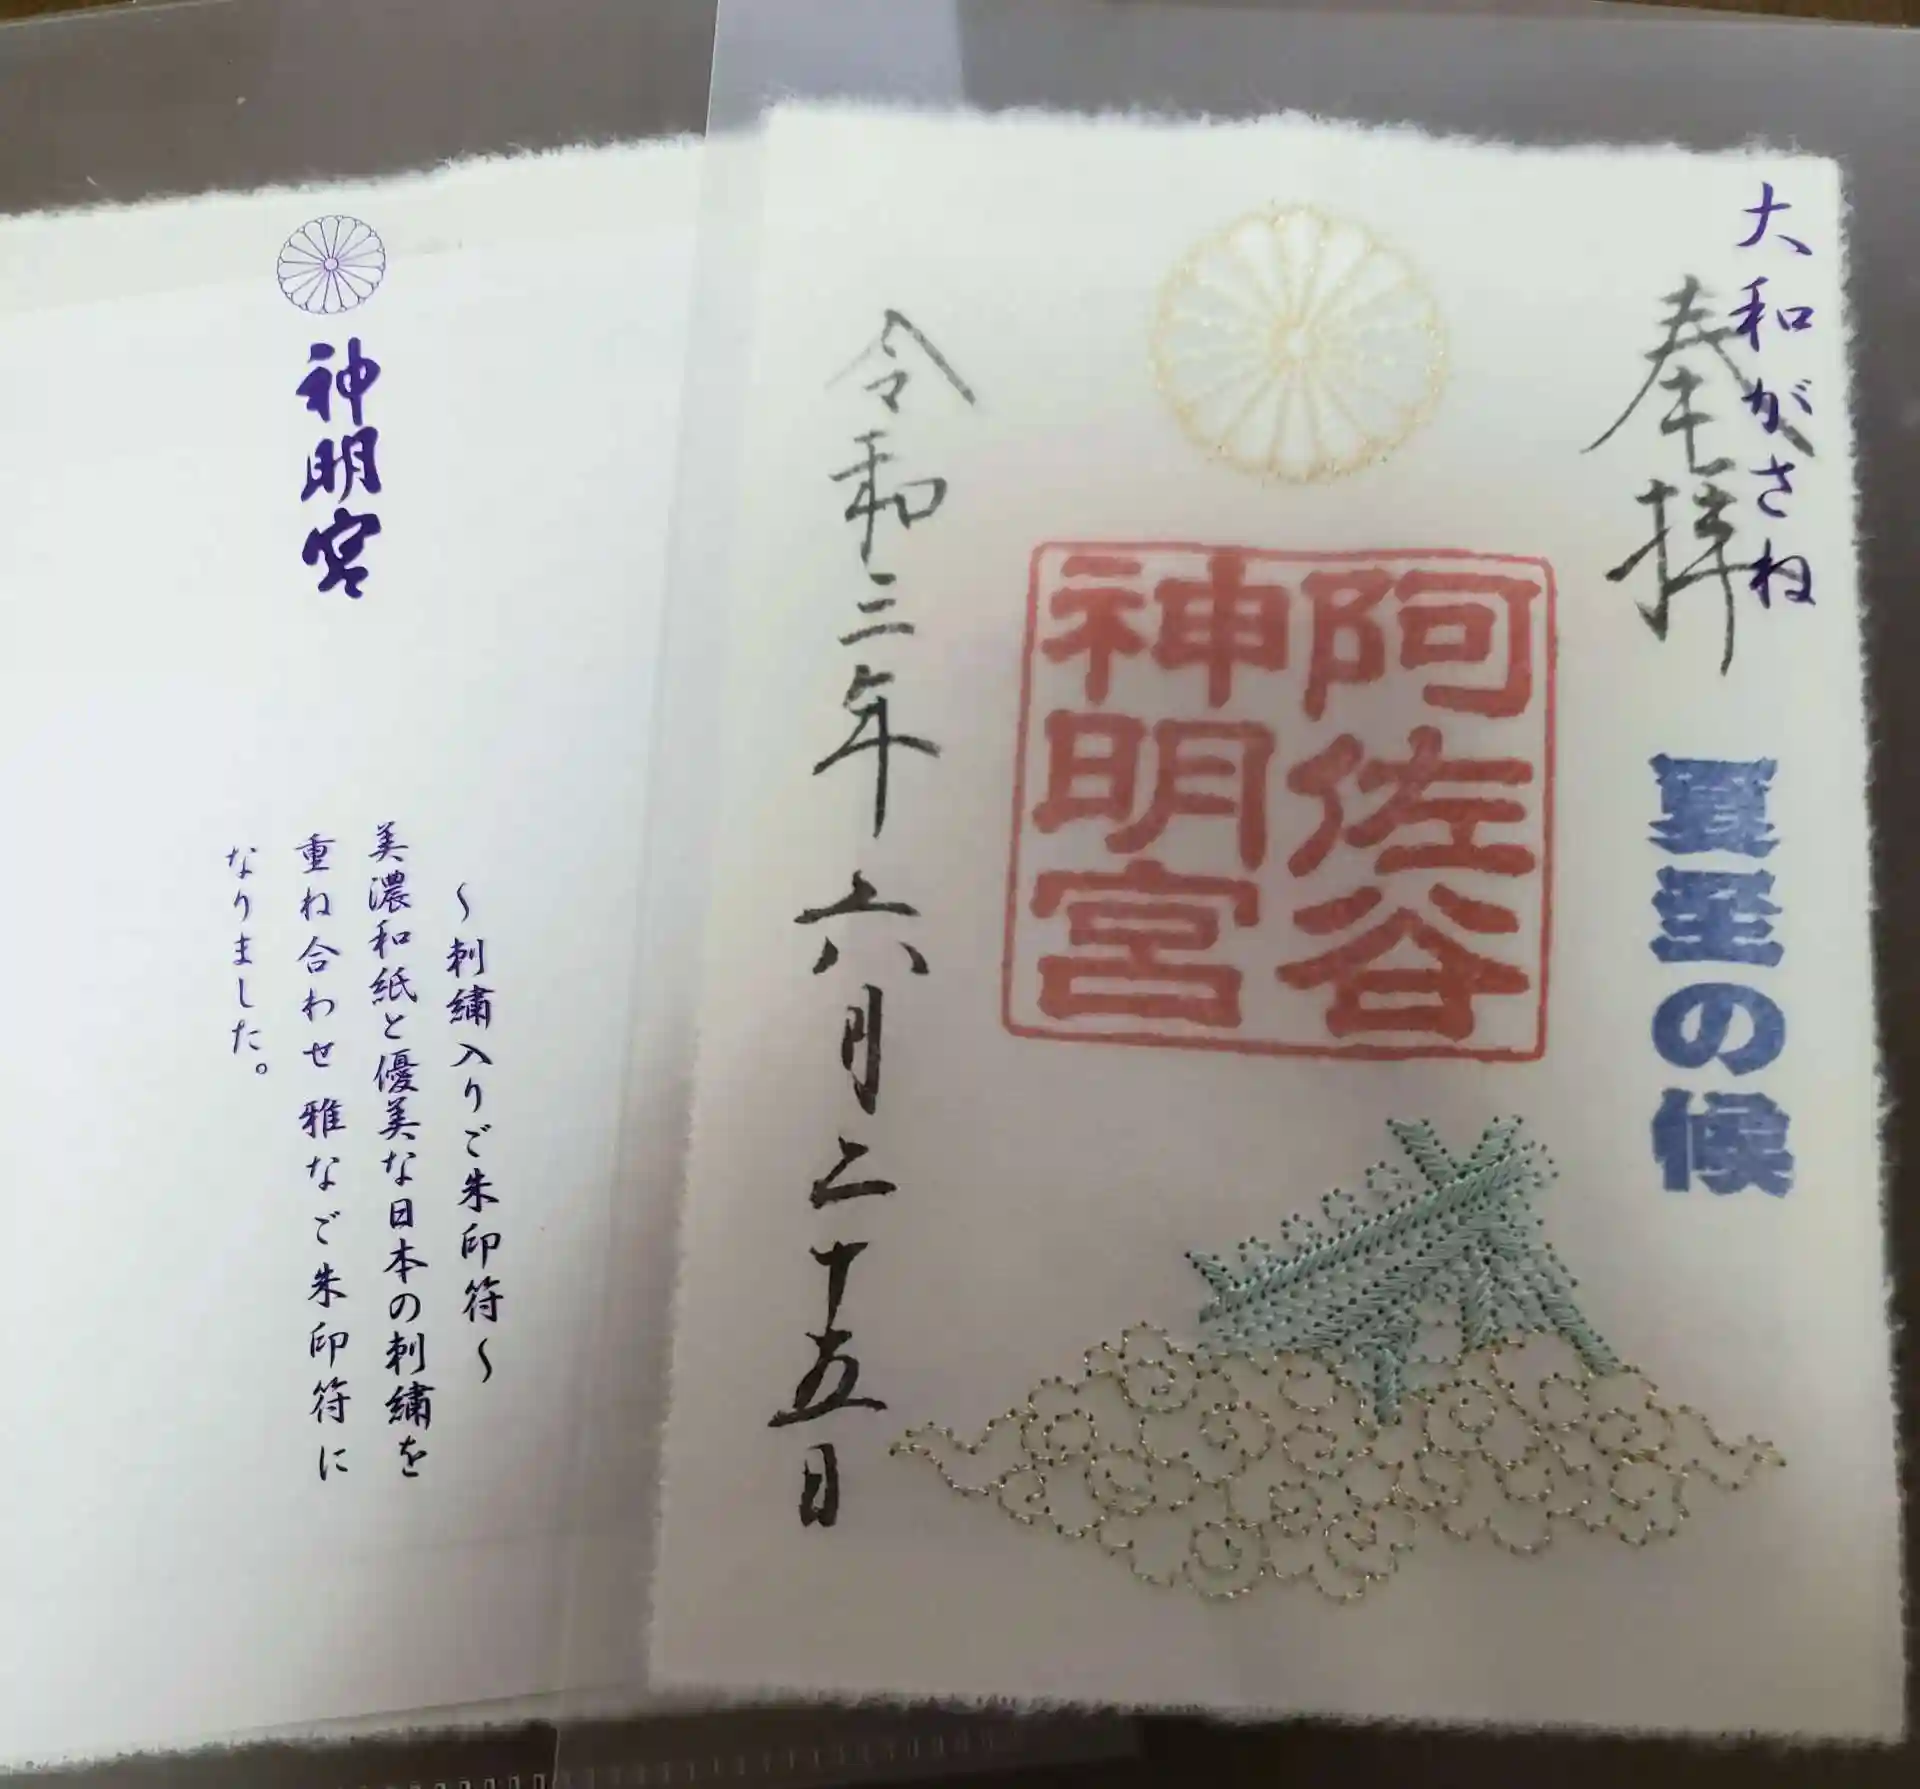 大和がさね
奉拝
夏至の候
阿佐谷
神明宮
令和三年六月二十五日
神明宮
～刺繍入りご朱印符～
美濃和紙と優美な日本の刺繍を
重ね合わせ雅なご朱印符に
なりました。